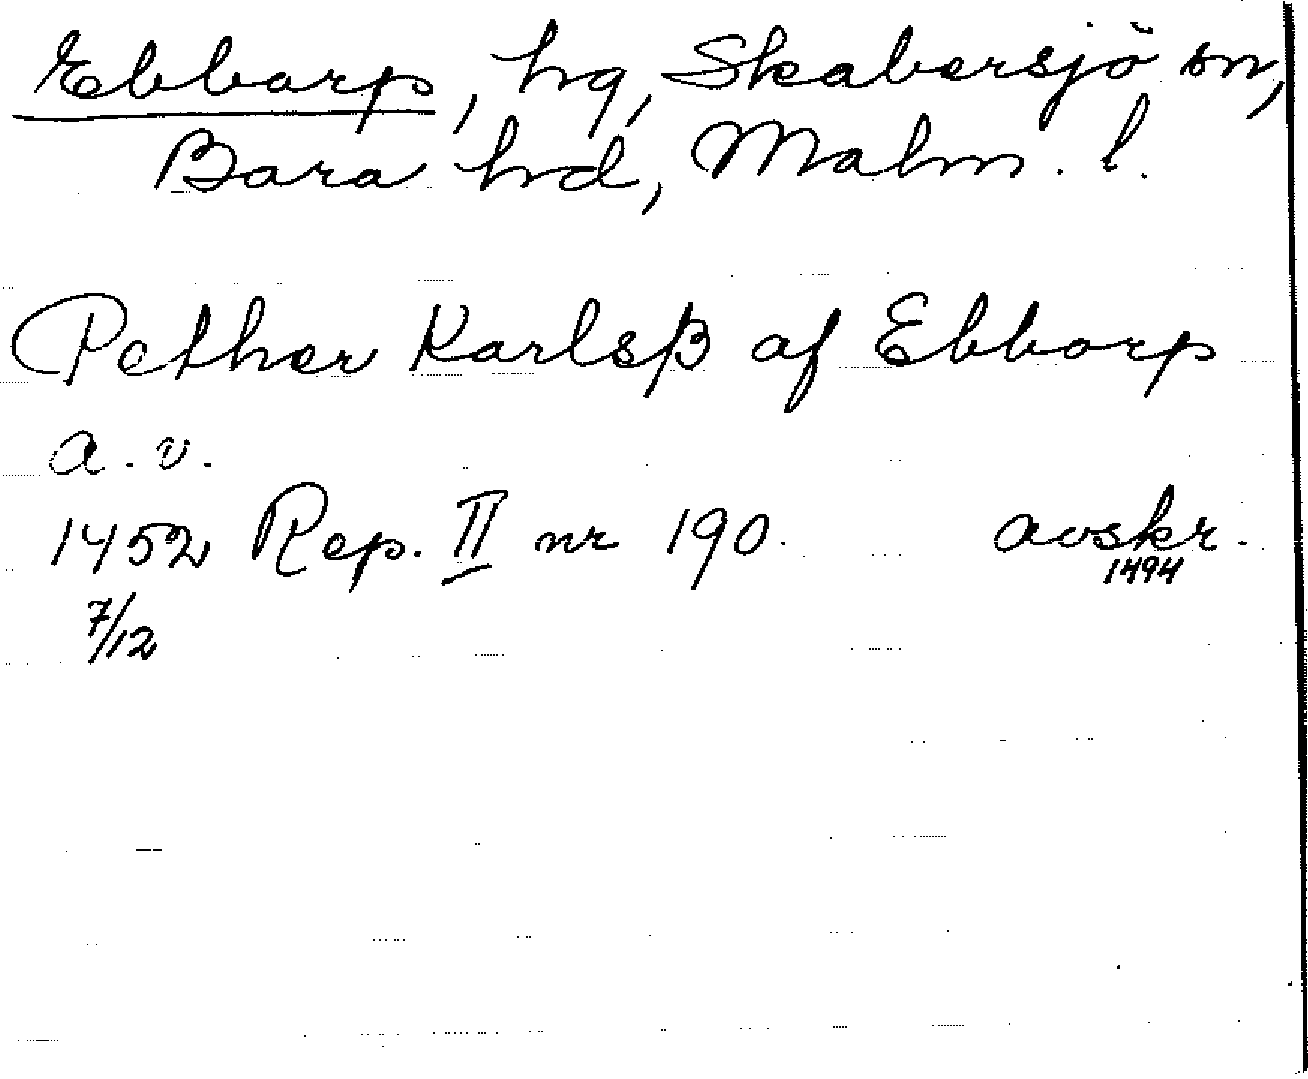 Ebbarp, hg, Skabersjö sn,
Bara hd, Malm. l.
Pether Karlsβ af Ebbarp
a. v.
1452 Rep. II nr 190. avskr.
1494
7/12